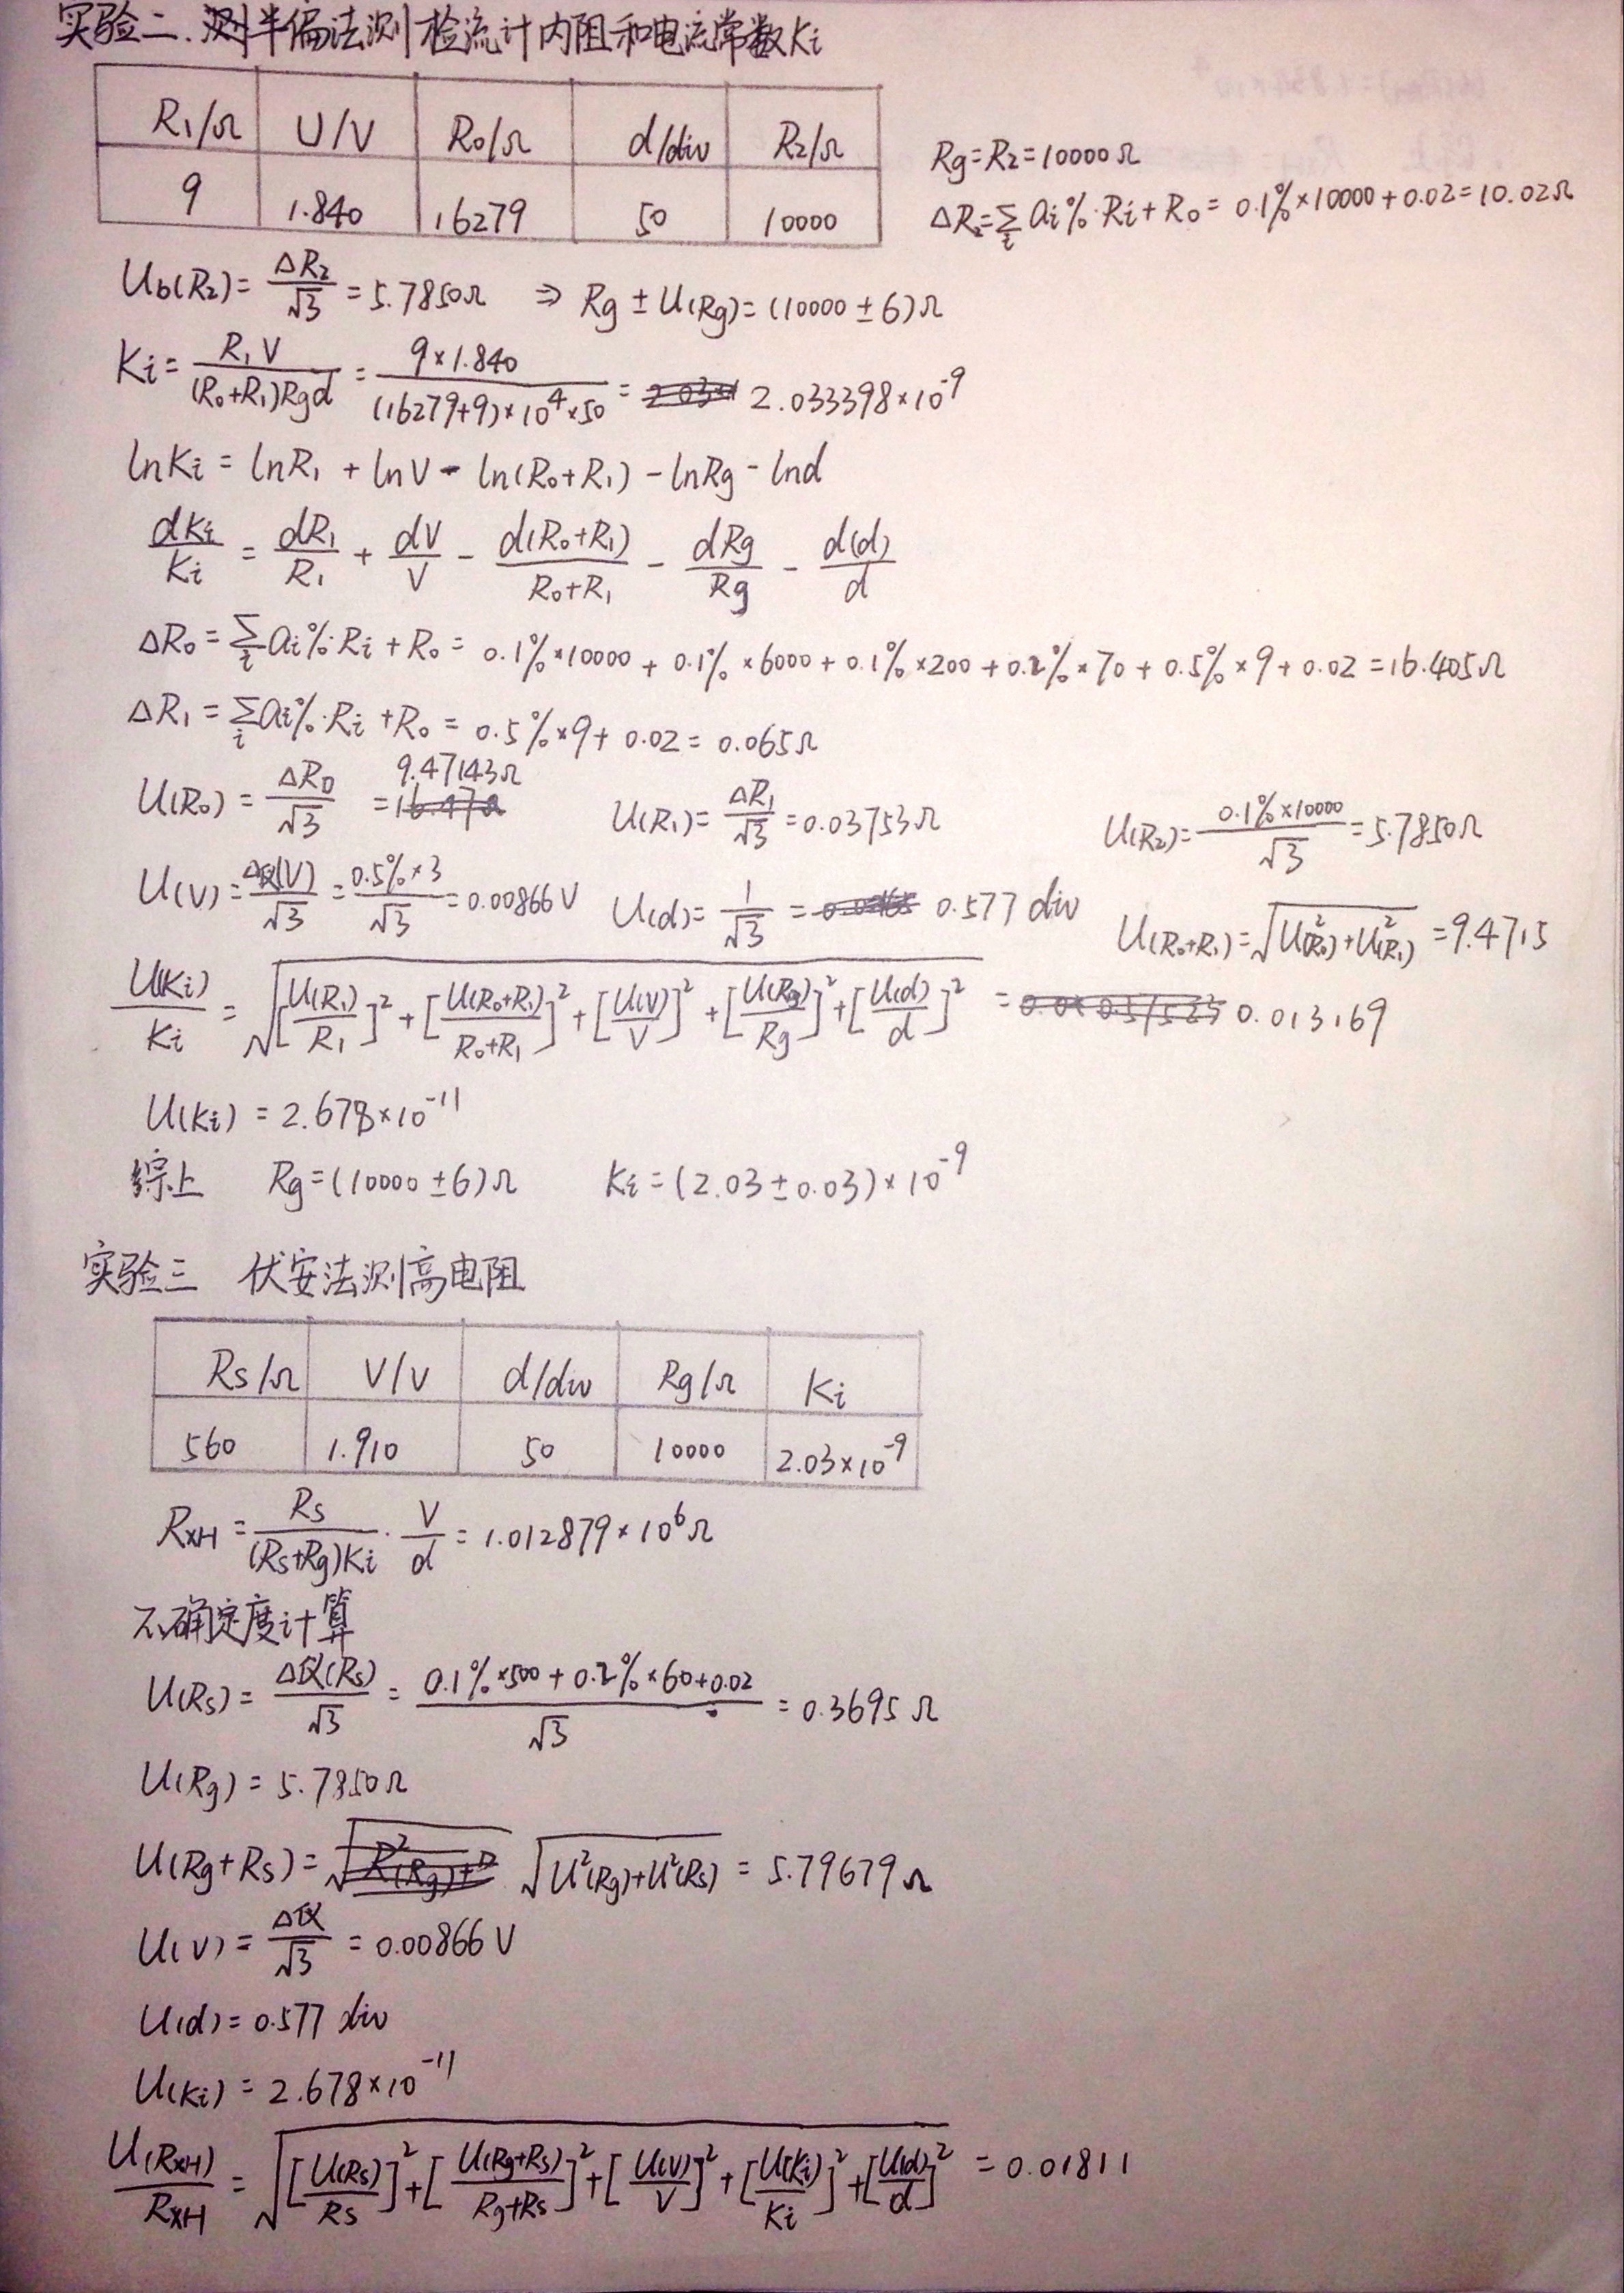 实验二.测半偏法测检流计内阻和电流常数Ki
R₁/Ω U/V R₀/Ω d/div R₂/Ω
9 1.840 16279 50 10000
Rg=R₂=10000Ω
ΔR₂=∑ᵢ aᵢ%·Rᵢ+R₀= 0.1%×10000+0.02=10.02Ω
U_b(R₂)= ΔR₂/√3 = 5.7850Ω ⇒ Rg ± U(Rg)=(10000±6)Ω
Ki= R₁V/((R₀+R₁)Rgd) = 9×1.840/((16279+9)×10⁴×50) = 2.033398×10⁻⁹
lnKi = lnR₁ + lnV - ln(R₀+R₁) - lnRg - lnd
dKi/Ki = dR₁/R₁ + dV/V - d(R₀+R₁)/(R₀+R₁) - dRg/Rg - d(d)/d
ΔR₀=∑ᵢ aᵢ%·Rᵢ+R₀= 0.1%×10000 + 0.1%×6000 + 0.1%×200 + 0.2%×70 + 0.5%×9 + 0.02 =16.405Ω
ΔR₁=∑ᵢ aᵢ%·Rᵢ+R₀ = 0.5%×9+ 0.02= 0.065Ω
U(R₀) = ΔR₀/√3 = 9.47143Ω U(R₁)= ΔR₁/√3 =0.03753Ω U(R₂)= 0.1%×10000/√3 =5.7850Ω
U(V)= Δ仪(V)/√3 = 0.5%×3/√3 =0.00866V U(d)= 1/√3 = 0.577 div U(R₀+R₁)=√(U²(R₀)+U²(R₁)) =9.4715
U(Ki)/Ki = √([U(R₁)/R₁]²+[U(R₀+R₁)/(R₀+R₁)]²+[U(V)/V]²+[U(Rg)/Rg]²+[U(d)/d]²) = 0.013169
U(Ki) = 2.678×10⁻¹¹
综上 Rg=(10000±6)Ω Ki=(2.03±0.03)×10⁻⁹
实验三 伏安法测高电阻
Rs/Ω V/V d/div Rg/Ω Ki
560 1.910 50 10000 2.03×10⁻⁹
R_XH = Rs/((Rs+Rg)Ki) · V/d = 1.012879×10⁶Ω
不确定度计算
U(Rs)= Δ仪(Rs)/√3 = (0.1%×500+0.2%×60+0.02)/√3 = 0.3695Ω
U(Rg) = 5.7850Ω
U(Rg+Rs)= √(U²(Rg)+U²(Rs)) = 5.79679Ω
U(V) = Δ仪/√3 = 0.00866V
U(d)= 0.577 div
U(Ki) = 2.678×10⁻¹¹
U(R_XH)/R_XH = √([U(Rs)/Rs]²+[U(Rg+Rs)/(Rg+Rs)]²+[U(V)/V]²+[U(Ki)/Ki]²+[U(d)/d]²) = 0.01811